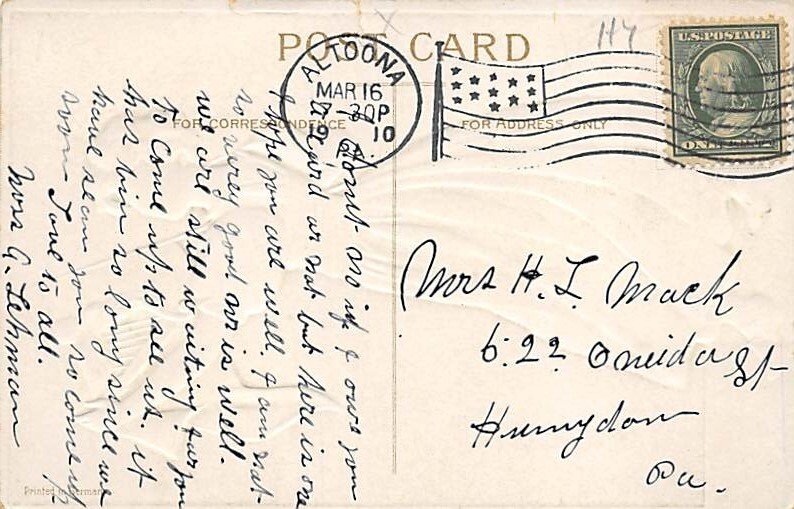 POST CARD
FOR CORRESPONDENCE
FOR ADDRESS ONLY
ALTOONA
MAR 16
30P
1910
U.S. POSTAGE
ONE CENT
117
Dont no if I ows you
a card or not but here is one
I hope you are well. I am not
so verey good W is well.
we are still waiting far you
To come up to see us. it
has bin so long since we
have sean you so come up
soon Love to all.
Mrs G. Lehman
Mrs H. L. Mack
622 Oneida St
Hunngdon
Pa.
Printed in Germany